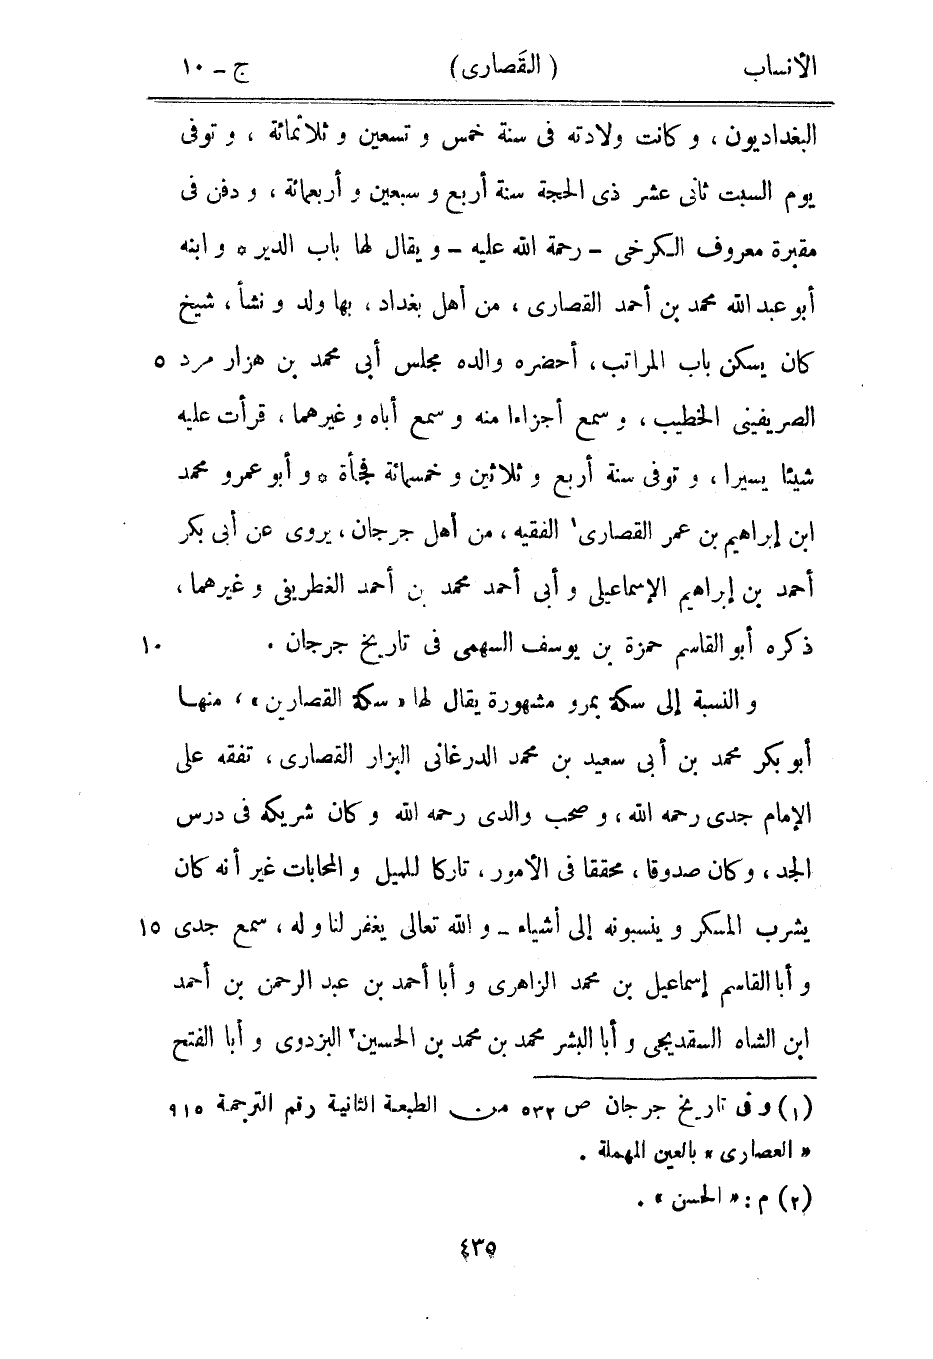 الأنساب (القَصارى) ج – ١٠
البغداديون ، و كانت ولادته فى سنة خمس و تسعين و ثلاثمائة ، و توفى
يوم السبت ثانى عشر ذى الحجة سنة أربع و سبعين و أربعمائة ، و دفن فى
مقبرة معروف الكرخى – رحمة الله عليه – و يقال لها باب الدير * و ابنه
أبو عبد الله محمد بن أحمد القصارى ، من أهل بغداد ، بها ولد و نشأ ، شيخ
كان يسكن باب المراتب ، أحضره والده مجلس أبى محمد بن هزار مرد ٥
الصريفينى الخطيب ، و سمع أجزاءا منه و سمع أباه و غيرهما ، قرأت عليه
شيئا يسيرا ، و توفى سنة أربع و ثلاثين و خمسمائة فجأة * و أبو عمرو محمد
ابن إبراهيم بن عمر القصارى١ الفقيه ، من أهل جرجان ، يروى عن أبى بكر
أحمد بن إبراهيم الإسماعيلى و أبى أحمد محمد بن أحمد الغطريفى و غيرهما ،
ذكره أبو القاسم حمزة بن يوسف السهمى فى تاريخ جرجان . ١٠
و النسبة إلى سكة بمرو مشهورة يقال لها « سكة القصارين » ، منها
أبو بكر محمد بن أبى سعيد بن محمد الدرغانى البزار القصارى ، تفقه على
الإمام جدى رحمه الله ، و صحب والدى رحمه الله و كان شريكه فى درس
الجد ، و كان صدوقا ، محققا فى الأمور ، تاركا للميل و المحابات غير أنه كان
يشرب المسكر و ينسبونه إلى أشياء – و الله تعالى يغفر لنا و له ، سمع جدى ١٥
و أبا القاسم إسماعيل بن محمد الزاهرى و أبا أحمد بن عبد الرحمن بن أحمد
ابن الشاه السقديجى و أبا البشر محمد بن محمد بن الحسين٢ البزدوى و أبا الفتح
(١) و فى تاريخ جرجان ص ٥٣٢ من الطبعة الثانية رقم الترجمة ٩١٥
« العصارى » بالعين المهملة .
(٢) م : « الحسن » .
٤٣٥